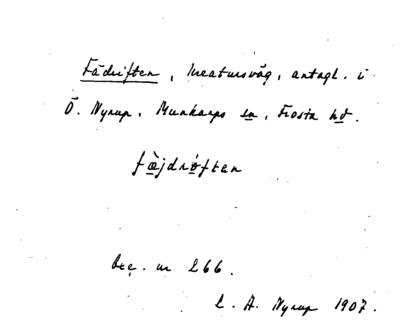 Fädriften, kreatursväg, antagl. i
Ö. Nyrup, Munkarps sn, Frosta hd.
fæ̀jdrøften
Acc. nr 266.
L. A. Nyrup 1907.